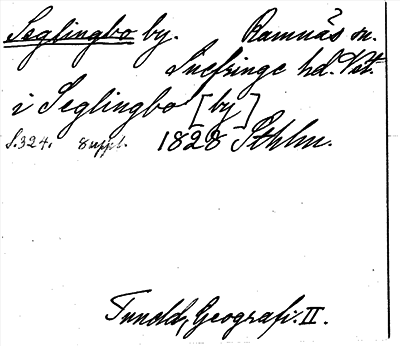 Seglingbo by. Ramnäs sn.
Snefringe hd. Vstm.
i Seglingbo [by]
S. 324. 8 uppl. 1828 Sthlm.
Tuneld, Geografi. II.